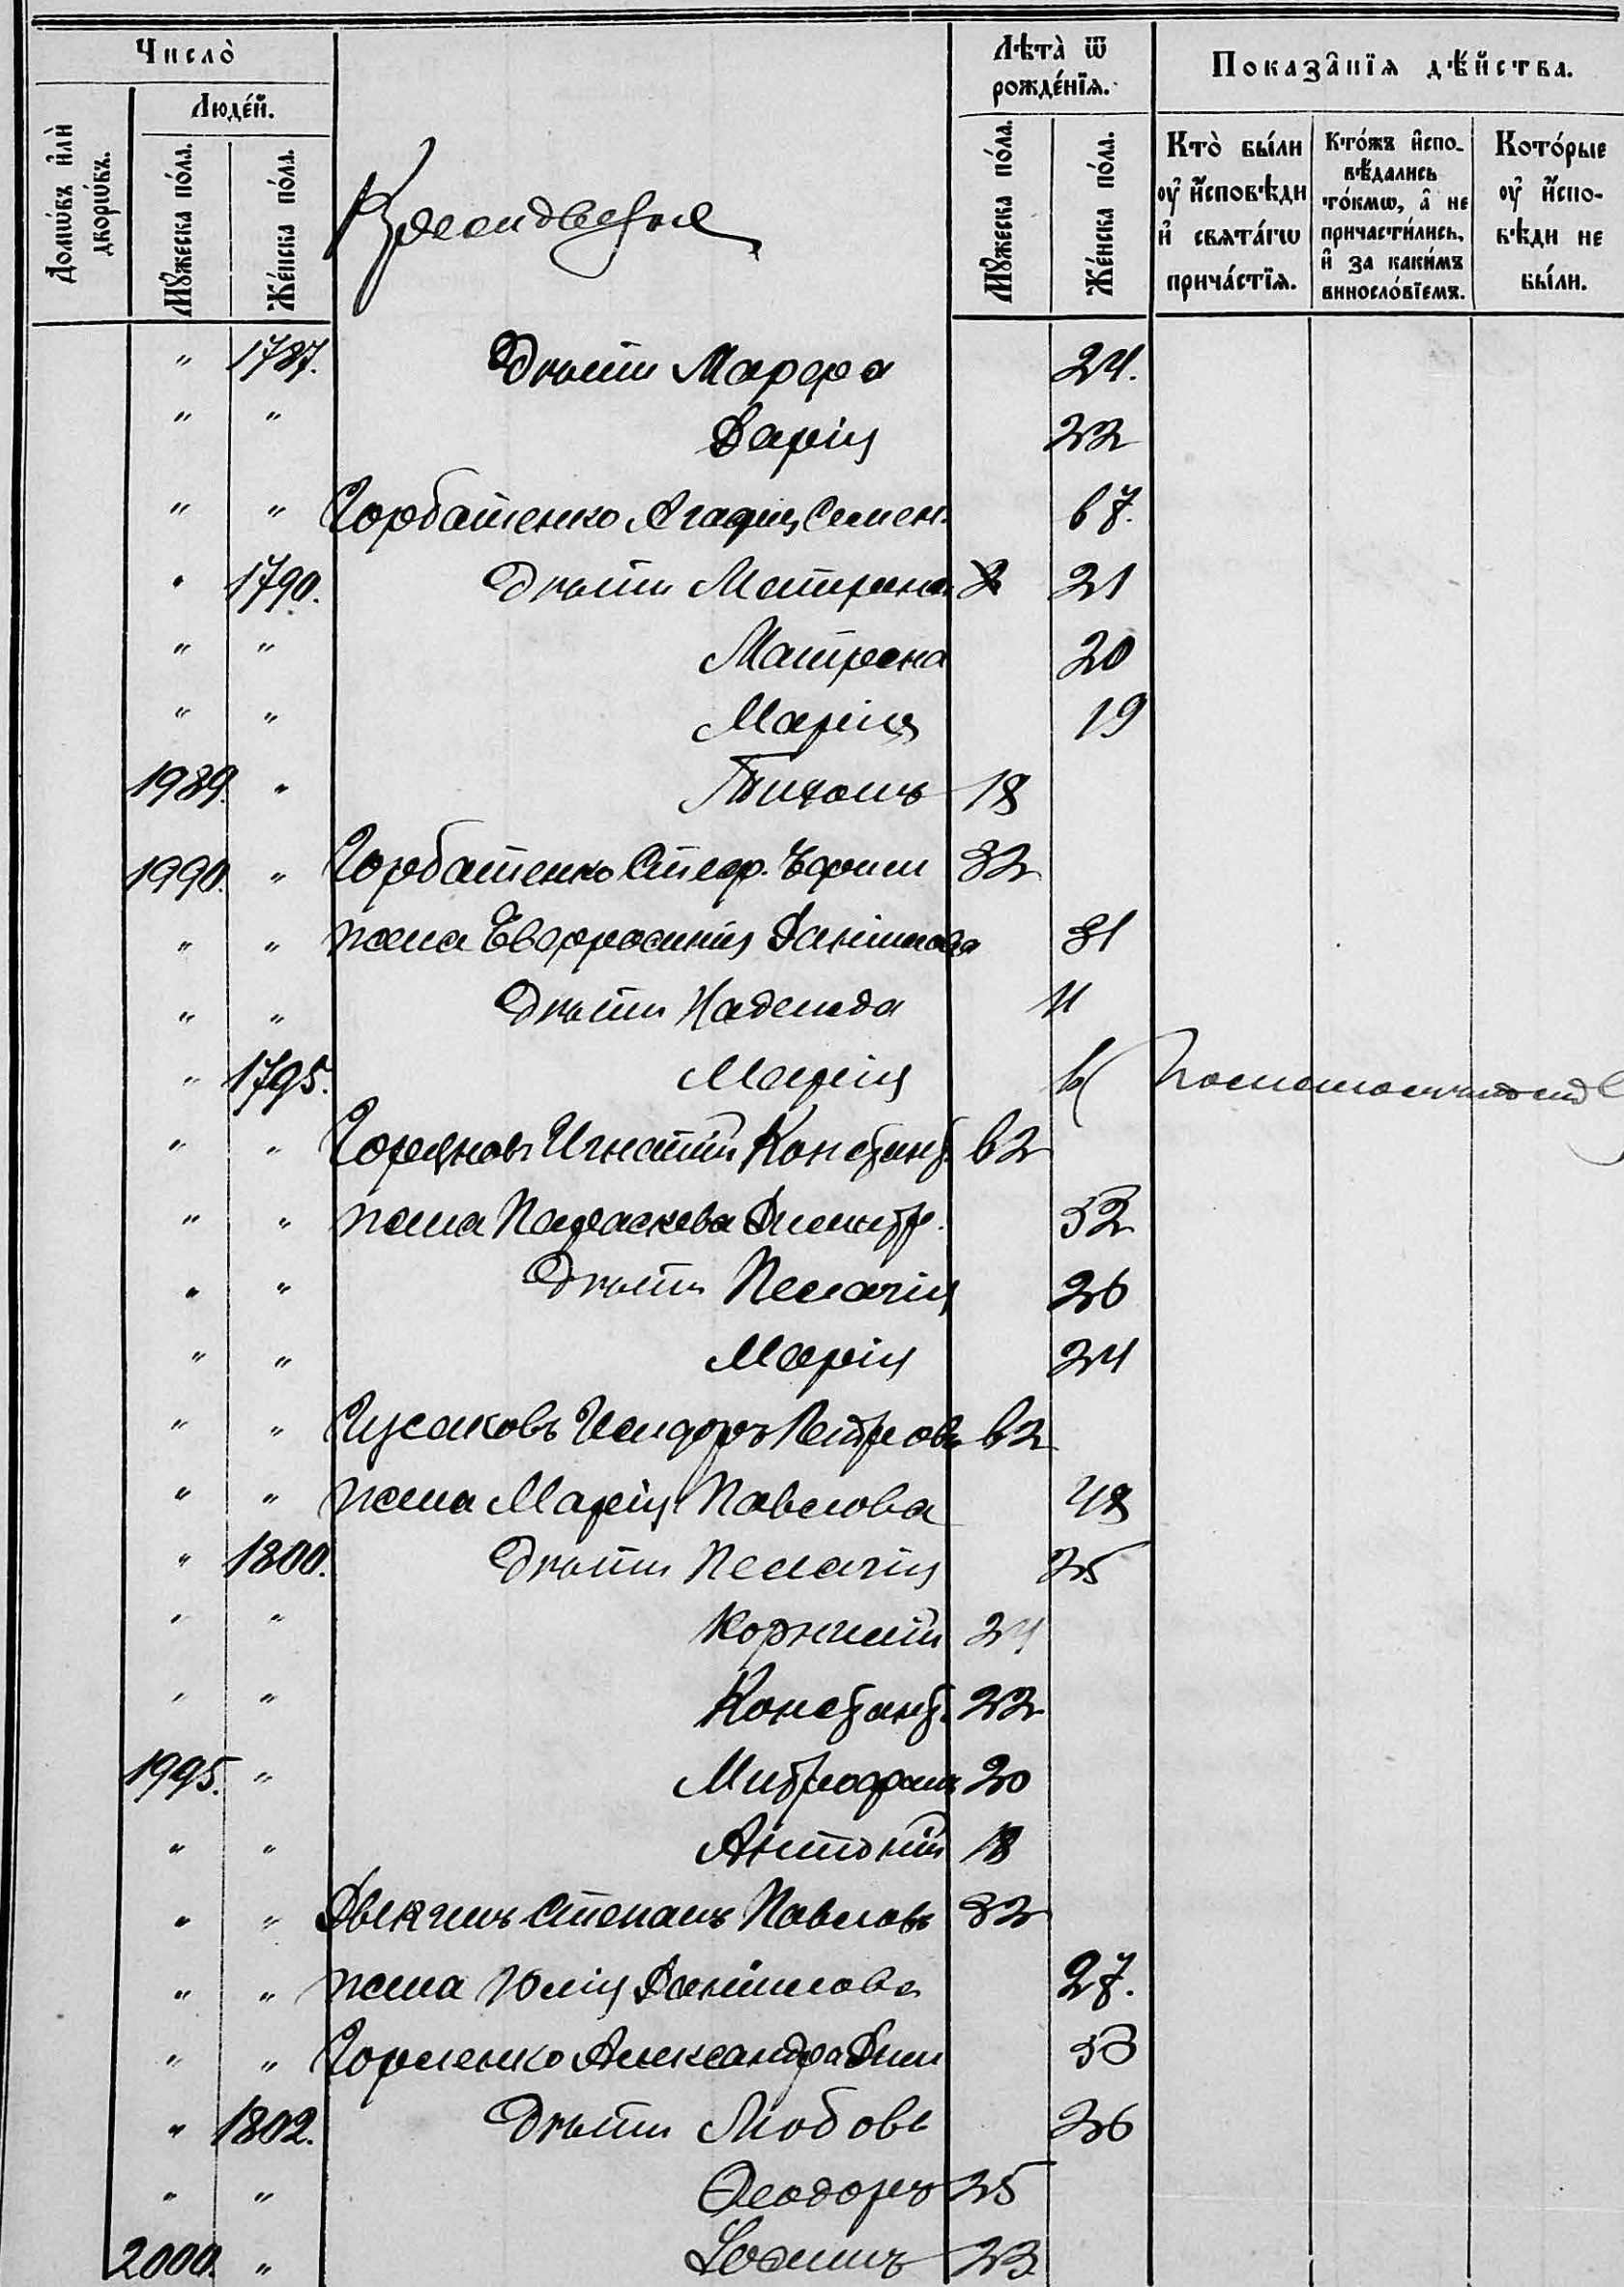 Число̀
Людéй.
Домѡ́въ и҆лѝ дворѡ́въ.
Мꙋ́жеска по́ла.
Же́нска по́ла.
Лѣ́та ѿ рожде́нїѧ.
Мꙋ́жеска по́ла.
Же́нска по́ла.
Показа̑нїѧ дѣ́йства.
Кто̀ бы́ли
ᲂу҆ и҆́сповѣди
и҆ свѧта́гѡ
прича́стїѧ.
Кто́жъ и҆спо-
вѣ́дались
то́кмѡ, а҆ не
причасти́лись,
и҆ за каки́мъ
виносло́вїемъ.
Кото́рые
ᲂу҆ и҆́спо-
вѣди не
бы́ли.
" 1787. Дѣти Марфа 24.
" " Дарія 22
" " Горбатенко Агафія Семен. 67.
" 1790. Дѣти Матрена 21
" " Матрена 20
" " Марія 19
1989. " Тихонъ 18
1990. " Горбатенко Стеф. Ефим 32
" " жена Евфросинія Данiилова 31
" " Дѣти Надежда 11
" 1795. Марія
" " Игнатій Констант. 62
" " жена Параскева Димитр. 52
" " Дѣти Пелагія 26
" " Марія 24
" " Гусаковъ Исидоръ Петровъ 62
" " жена Марія Павлова 48
" 1800. Дѣти Пелагія 25
" " Корнилій 24
" " Констант. 22
1995. " Митрофанъ 20
" " Антоній 18
" " Степанъ Павловъ 32
" " жена Юлія Данiилова 27.
" " Горленко Александра Дим 53
" 1802. Дѣти Любовь 26
" " Ѳеодоръ 25
2000. " 23